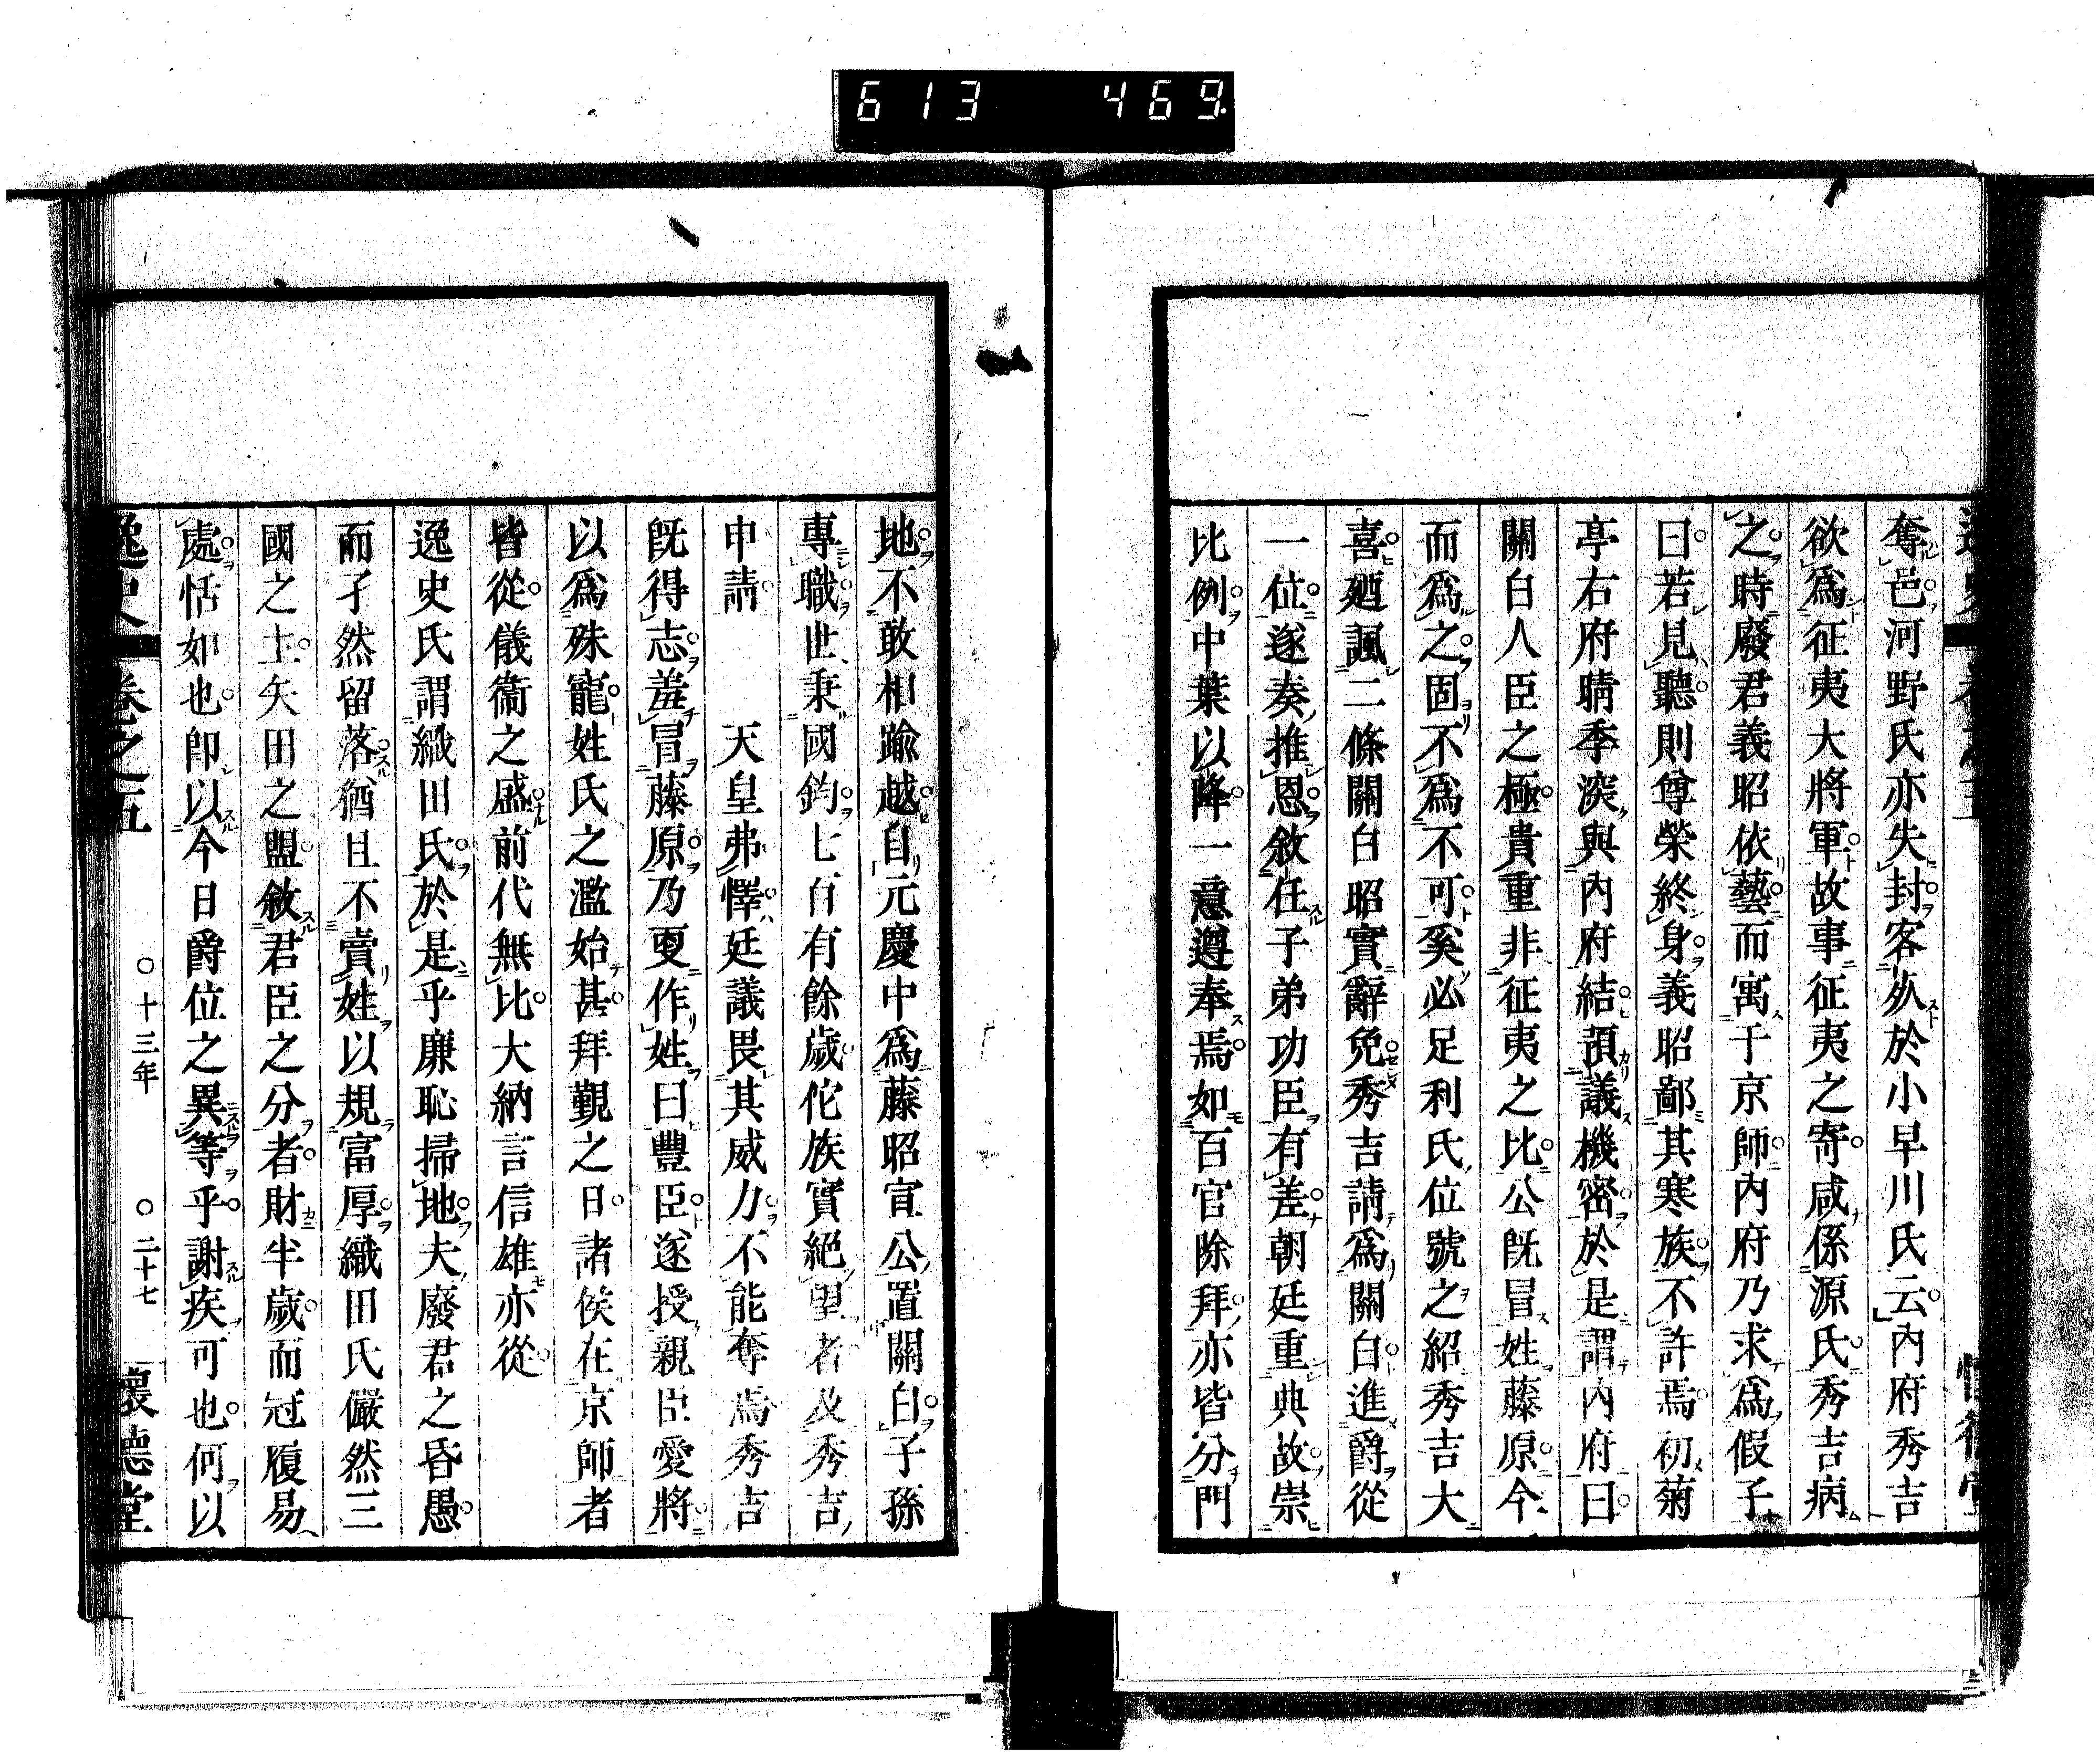 613 469
奪邑河野氏亦失封客死於小早川氏云内府秀吉
欲爲征夷大將軍故事征夷之寄咸係源氏秀吉病
之時廢君義昭依藝而寓于京師内府乃求爲假子
曰若見聽則尊榮終身義昭鄙其寒族不許焉初菊
亭右府晴季深與内府結預議機密於是謂内府曰
關白人臣之極貴重非征夷之比公既冒姓藤原今
而爲之固不爲不可奚必足利氏位號之紹秀吉大
喜廼諷二條關白昭實辭免秀吉請爲關白進爵從
一位遂奏推恩敘任子弟功臣有差朝廷重典故崇
比例中葉以降一意遵奉焉如百官除拜亦皆分門
地不敢相踰越自元慶中爲藤昭宣公置關白子孫
專職世秉國鈞七百有餘歲佗族實絶望者及秀吉
申請　　天皇弗懌廷議畏其威力不能奪焉秀吉
既得志羞冒藤原乃更作姓曰豐臣遂授親臣愛將
以爲殊寵姓氏之濫始甚拜覲之日諸侯在京師者
皆從儀衞之盛前代無比大納言信雄亦從
逸史氏謂織田氏於是乎廉恥掃地夫廢君之昏愚
而孑然留落猶且不賣姓以規富厚織田氏儼然三
國之主矢田之盟敘君臣之分者財半歲而冠履易
處恬如也卽以今日爵位之異等乎謝疾可也何以
逸史　卷之五　○十三年　○二十七　懷德堂